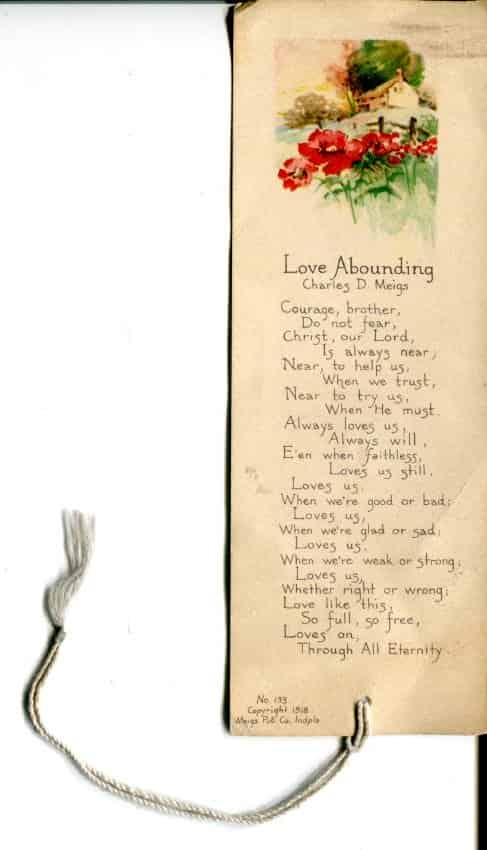 Love Abounding
Charles D. Meigs
Courage, brother,
Do not fear,
Christ, our Lord,
Is always near;
Near, to help us,
When we trust,
Near to try us,
When He must.
Always loves us,
Always will,
E'en when faithless,
Loves us still.
Loves us.
When we're good or bad;
Loves us,
When we're glad or sad;
Loves us,
When we're weak or strong;
Loves us,
Whether right or wrong;
Love like this,
So full, so free,
Loves on,
Through All Eternity.
No. 193
Copyright 1918
Meigs Pub. Co. Indpls